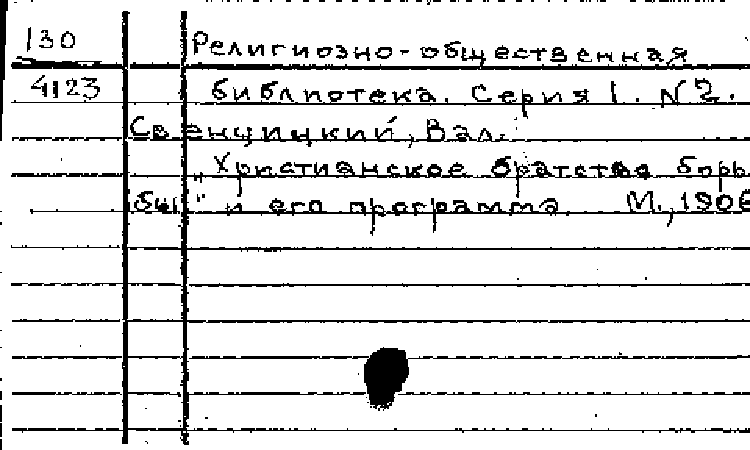 130 Религиозно-общественная
4123 библиотека. Серия 1. N 2.
Свенцицкий, Вал.
„Христианское братство борь
бы" и его программа. М., 1906